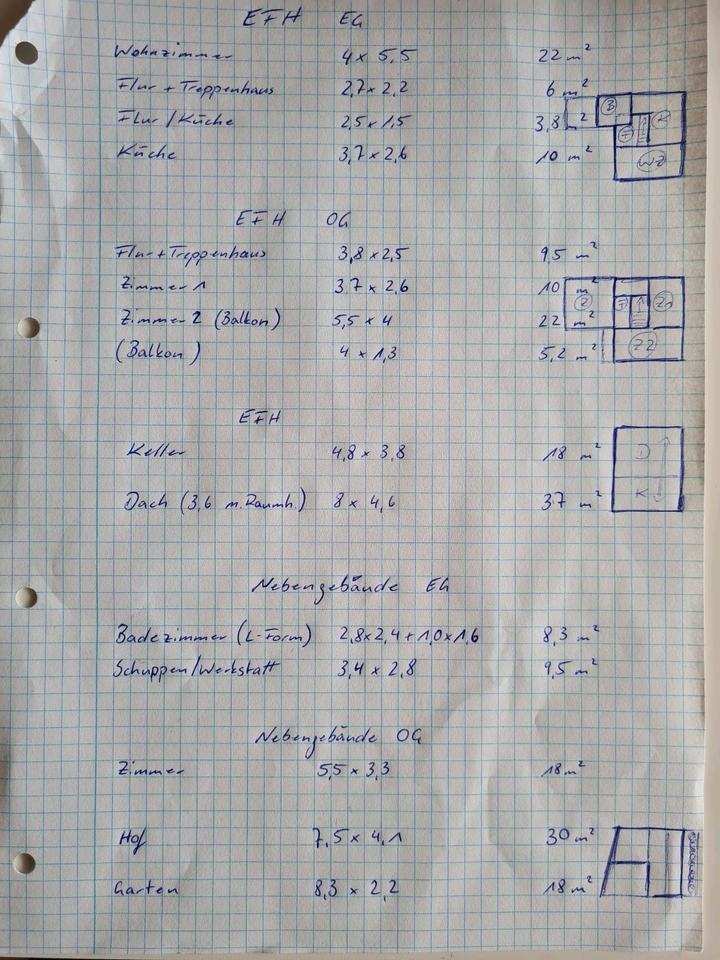 EFH EG
Wohnzimmer 4 x 5,5 22 m²
Flur + Treppenhaus 2,7 x 2,2 6 m²
Flur / Küche 2,5 x 1,5 3,8 m²
Küche 3,7 x 2,6 10 m²
B
F
K
WZ
EFH OG
Flur + Treppenhaus 3,8 x 2,5 9,5 m²
Zimmer 1 3,7 x 2,6 10 m²
Zimmer 2 (Balkon) 5,5 x 4 22 m²
(Balkon) 4 x 1,3 5,2 m²
Z
F
Z1
Z2
EFH
Keller 4,8 x 3,8 18 m²
Dach (3,6 m. Raumh.) 8 x 4,6 37 m²
D
K
Nebengebäude EG
Badezimmer (L-Form) 2,8 x 2,4 + 1,0 x 1,6 8,3 m²
Schuppen / Werkstatt 3,4 x 2,8 9,5 m²
Nebengebäude OG
Zimmer 5,5 x 3,3 18 m²
Hof 7,5 x 4,1 30 m²
Garten 8,3 x 2,2 18 m²